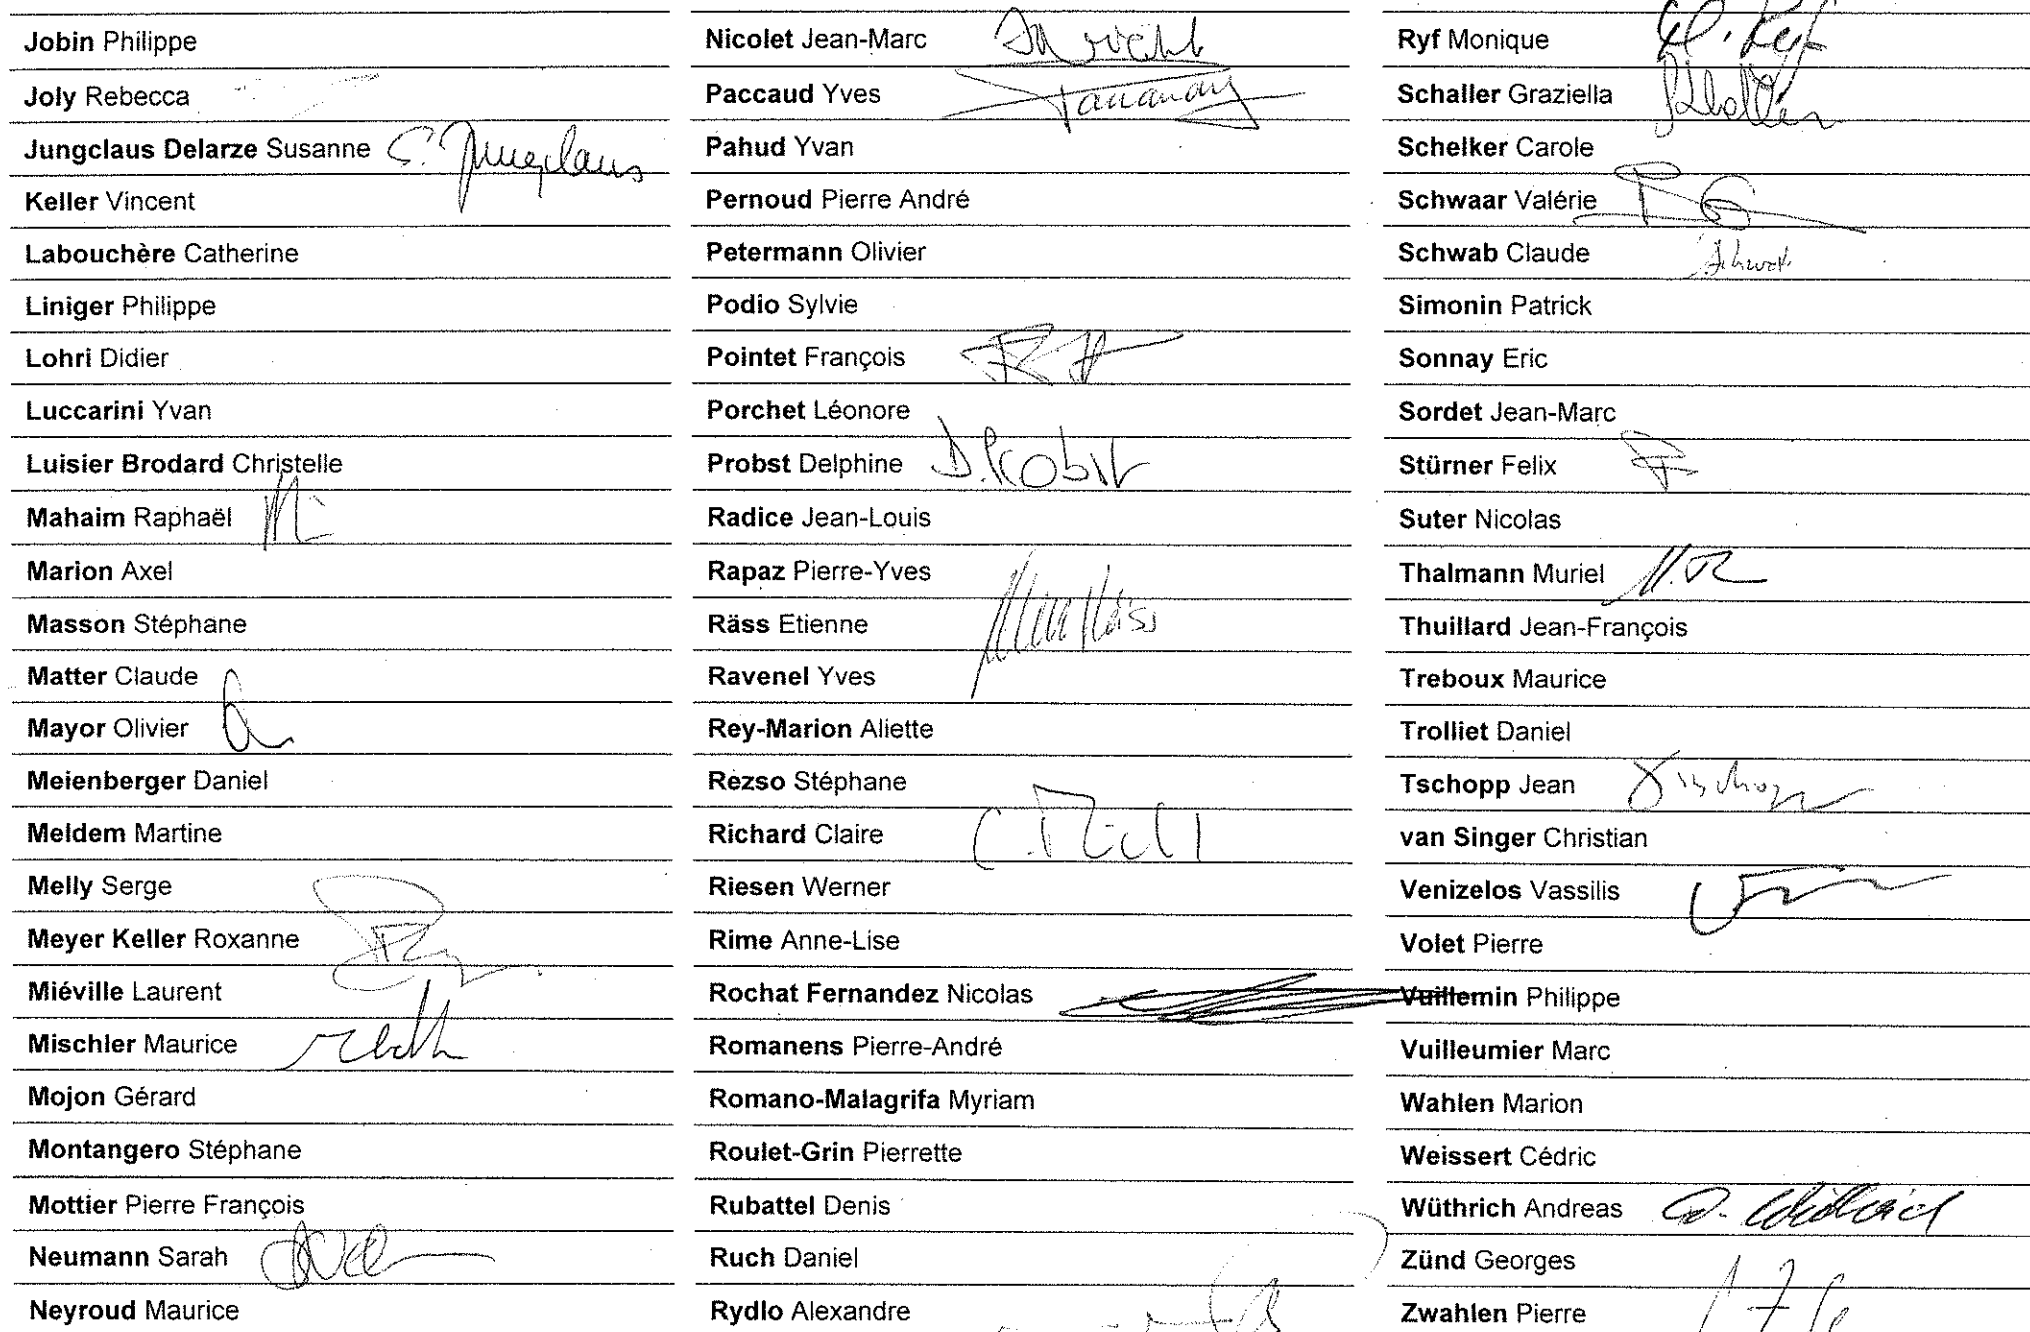 Jobin Philippe
Joly Rebecca
Jungclaus Delarze Susanne S. Jungclaus
Keller Vincent
Labouchère Catherine
Liniger Philippe
Lohri Didier
Luccarini Yvan
Luisier Brodard Christelle
Mahaim Raphaël
Marion Axel
Masson Stéphane
Matter Claude
Mayor Olivier
Meienberger Daniel
Meldem Martine
Melly Serge
Meyer Keller Roxanne
Miéville Laurent
Mischler Maurice
Mojon Gérard
Montangero Stéphane
Mottier Pierre François
Neumann Sarah
Neyroud Maurice
Nicolet Jean-Marc
Paccaud Yves
Pahud Yvan
Pernoud Pierre André
Petermann Olivier
Podio Sylvie
Pointet François
Porchet Léonore
Probst Delphine D. Probst
Radice Jean-Louis
Rapaz Pierre-Yves
Räss Etienne
Ravenel Yves
Rey-Marion Aliette
Rezso Stéphane
Richard Claire
Riesen Werner
Rime Anne-Lise
Rochat Fernandez Nicolas
Romanens Pierre-André
Romano-Malagrifa Myriam
Roulet-Grin Pierrette
Rubattel Denis
Ruch Daniel
Rydlo Alexandre
Ryf Monique
Schaller Graziella
Schelker Carole
Schwaar Valérie
Schwab Claude
Simonin Patrick
Sonnay Eric
Sordet Jean-Marc
Stürner Felix
Suter Nicolas
Thalmann Muriel
Thuillard Jean-François
Treboux Maurice
Trolliet Daniel
Tschopp Jean
van Singer Christian
Venizelos Vassilis
Volet Pierre
Vuillemin Philippe
Vuilleumier Marc
Wahlen Marion
Weissert Cédric
Wüthrich Andreas
Zünd Georges
Zwahlen Pierre